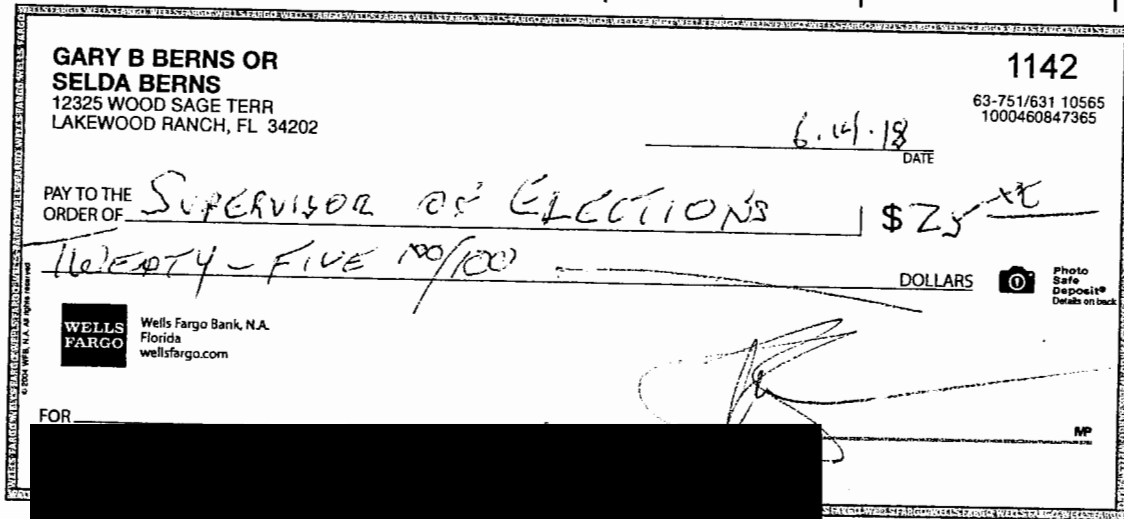 GARY B BERNS OR
SELDA BERNS
12325 WOOD SAGE TERR
LAKEWOOD RANCH, FL 34202
1142
63-751/631 10565
1000460847365
6.14.18
DATE
PAY TO THE
ORDER OF SUPERVISOR OF ELECTIONS $ 25
TWENTY-FIVE 100/100 DOLLARS
Photo
Safe
Deposit®
Details on back
WELLS
FARGO
Wells Fargo Bank, N.A.
Florida
wellsfargo.com
© 2004 WFB, N.A. All rights reserved
FOR
MP